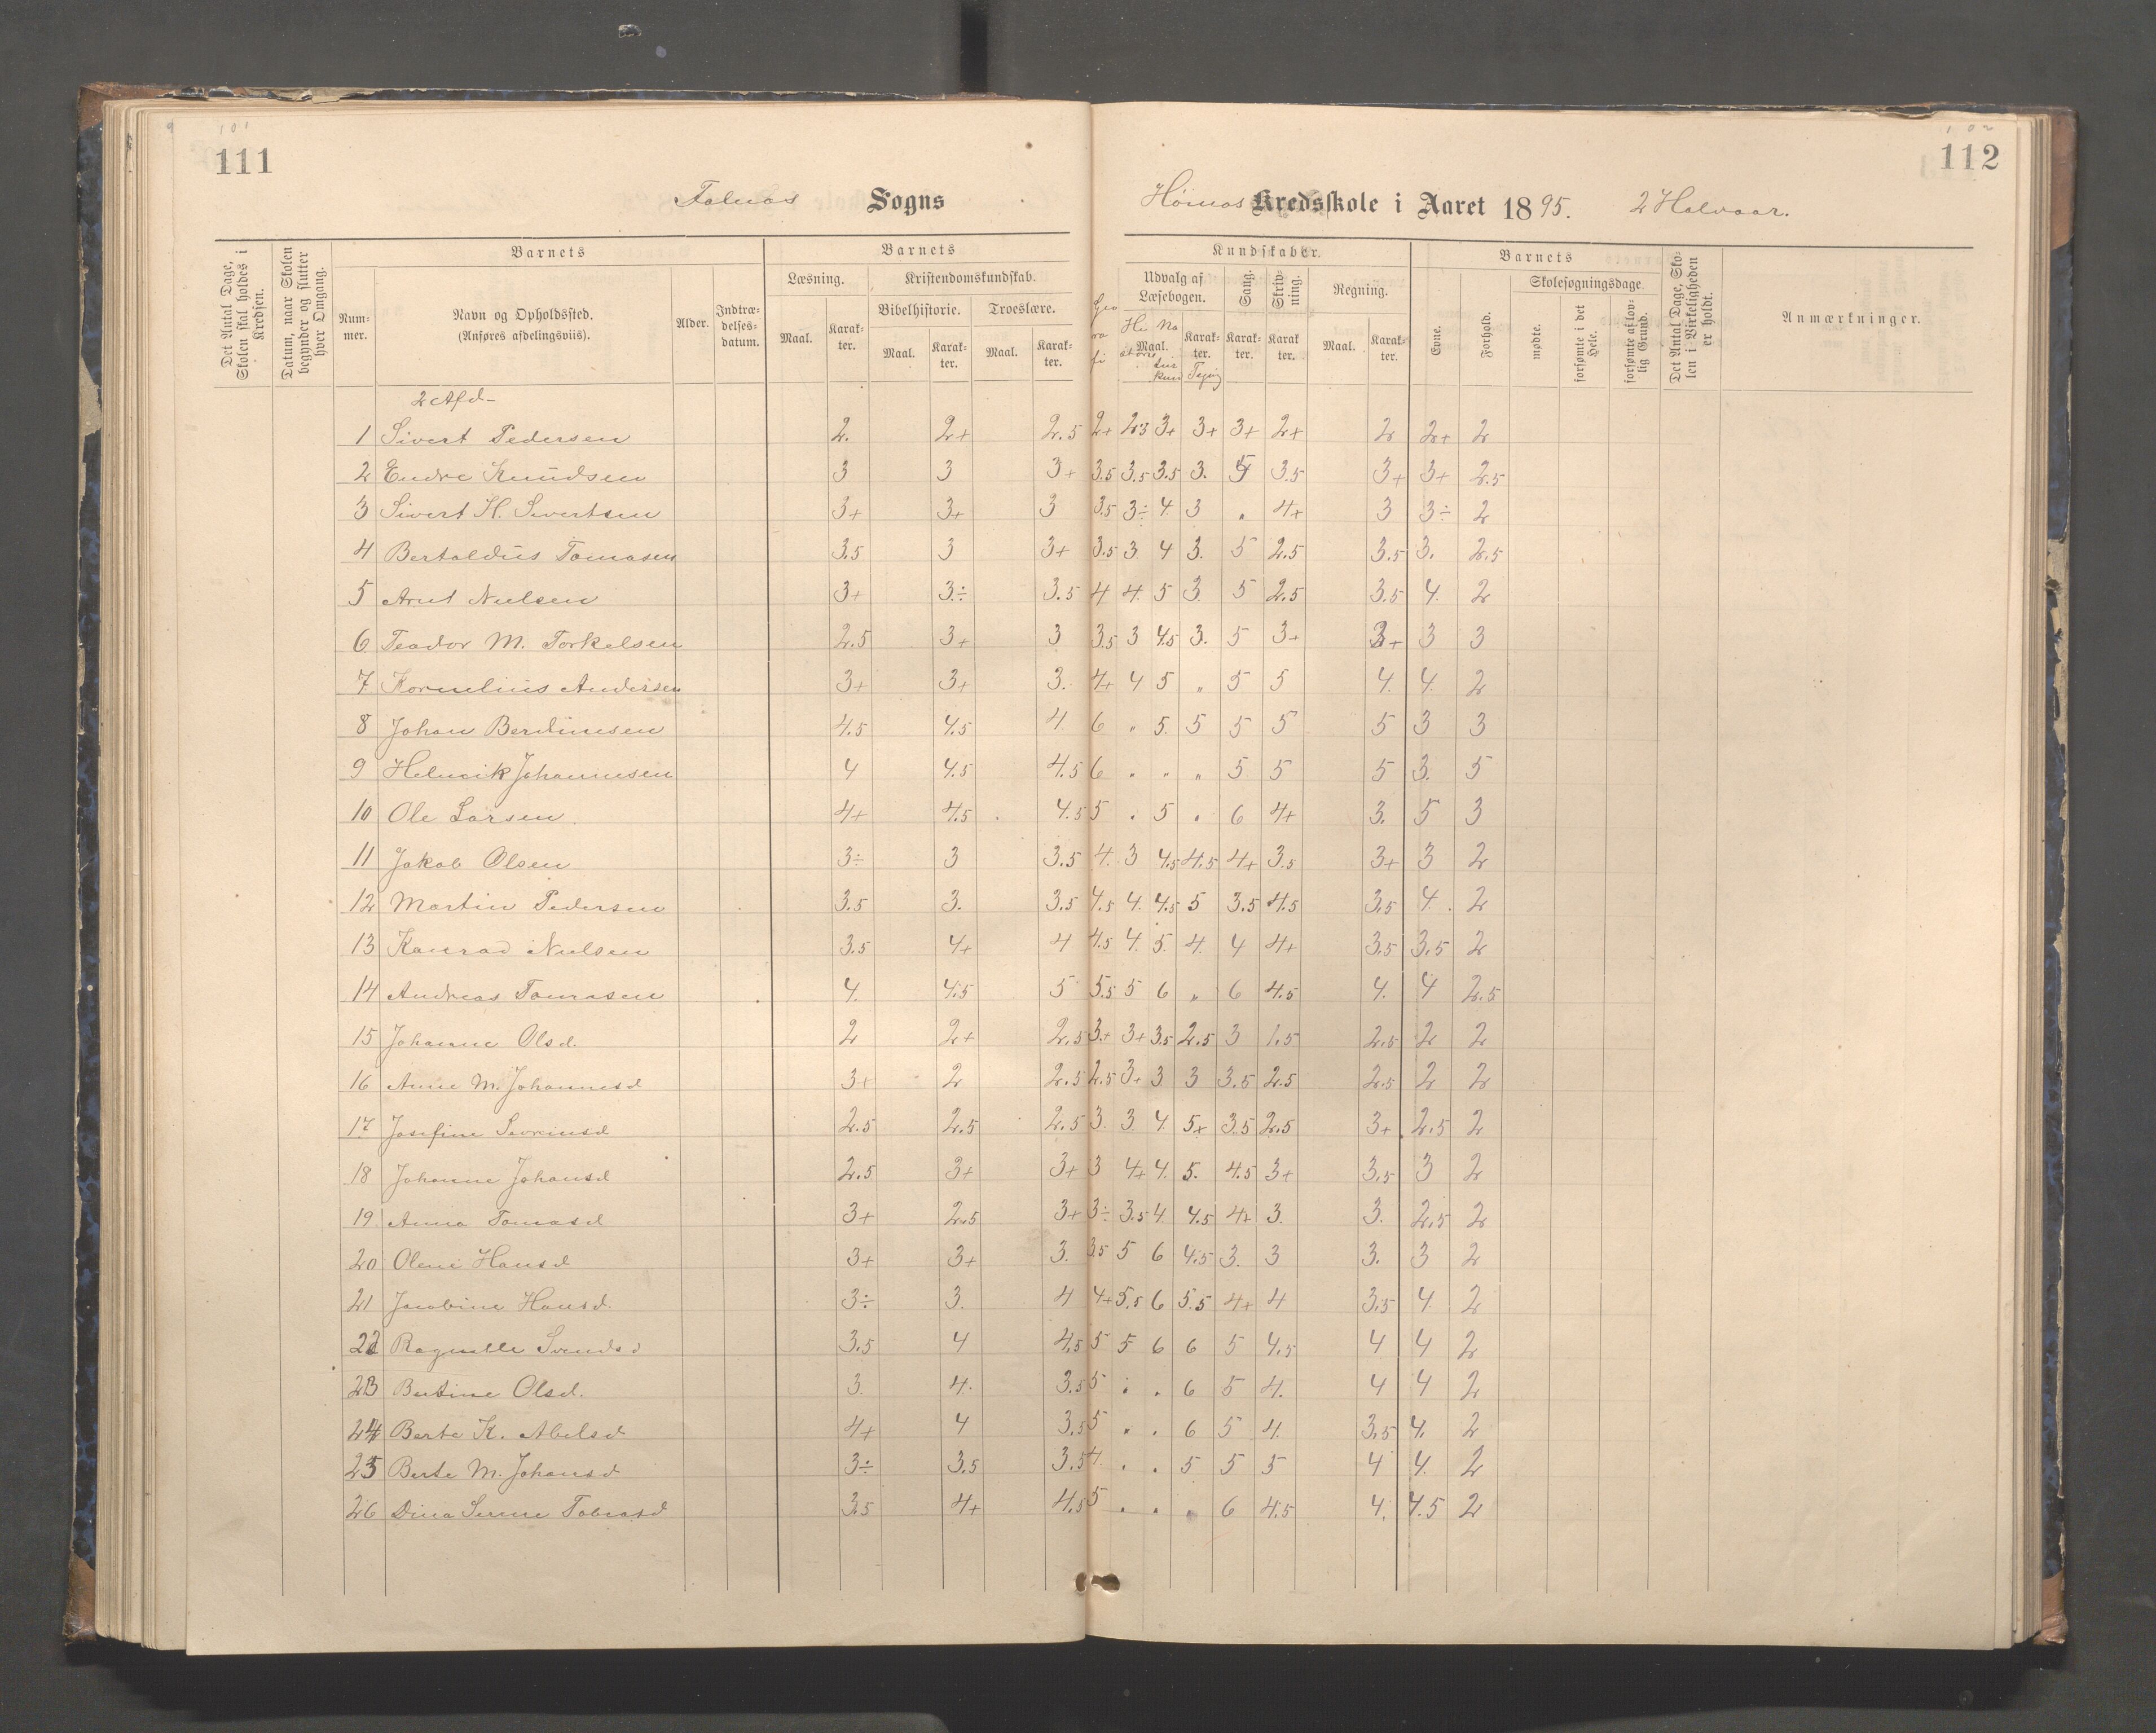 101
111
Falnæs Sogns
102
112
Kredsskole i Aaret 1895. 2 Halvaar.
Det Antal Dage, Skolen skal holdes i Kredsen.
Datum, naar Skolen begynder og slutter hver Omgang.
Barnets
Num-mer.
Navn og Opholdssted.
(Anføres afdelingsviis).
Alder.
Indtræ-delses-datum.
Barnets
Læsning.
Maal.
Karak-ter.
Kristendomskundskab.
Bibelhistorie.
Maal.
Karak-ter.
Troeslære.
Maal.
Karak-ter.
Kundskaber.
Geo ra fi
Udvalg af Læsebogen.
Maal.
Hi storie
Na tur kun
Karak-ter.
Tegnig
Sang.
Karak-ter.
Skriv ning.
Karak ter.
Regning.
Maal.
Karak-ter.
Barnets
Evne.
Forhold.
Skolesøgningsdage.
mødte.
forsømte i det Hele.
forsømte af lov-lig Grund.
Det Antal Dage, Sko-len i Virkeligheden er holdt.
Anmærkninger.
2 Afd-
1 Sivert Pedersen 2. 2+ 2.5 2+ 2.3 3+ 3+ 3+ 2+ 2 2+ 2
2 Endre Knudsen 3 3 3+ 3.5 3.5 3.5 3. 5 3.5 3+ 3+ 2.5
3 Sivert H. Sivertsen 3+ 3+ 3 3.5 3÷ 4 3 „ 4+ 3 3÷ 2
4 Bertoldus Tomasen 3.5 3 3+ 3.5 3 4 3. 5 2.5 3.5 3. 2.5
5 Arnt Nielsen 3+ 3.÷ 3.5 4 4. 5 3 5 2.5 3.5 4. 2
6 Teodor M. Torkelsen 2.5 3+ 3 3.5 3 4.5 3. 5 3+ 3+ 3 3
7 Kornelius Andersen 3+ 3+ 3. 4+ 4 5 „ 5 5 4. 4. 2
8 Johan Berdinesen 4.5 4.5 4 6 „ 5. 5 5 5 5 3 3
9 Helmik Johannesen 4 4.5 4.5 6 „ „ „ 5 5 5 3. 5
10 Ole Larsen 4+ 4.5 4.5 5 „ 5 „ 6 4+ 3. 5 3
11 Jakob Olsen 3÷ 3 3.5 4. 3 4.5 4.5 4+ 3.5 3+ 3 2
12 Martin Pedersen 3.5 3. 3.5 4.5 4. 4.5 5 3.5 4.5 3.5 4. 2
13 Konrad Nielsen 3.5 4+ 4 4.5 4. 5. 4. 4 4+ 3.5 3.5 2
14 Andreas Tomasen 4. 4.5 5 5.5 5 6 „ 6 4.5 4. 4 2.5
15 Johanne Olsd. 2 2+ 2.5 3+ 3+ 3.5 2.5 3 1.5 2.5 2 2
16 Anne M. Johannesd 3+ 2 2.5 2.5 3+ 3 3 3.5 2.5 2.5 2 2
17 Josefine Sevrinsd 2.5 2.5 2.5 3. 3. 4. 5+ 3.5 2.5 3+ 2.5 2
18 Johanne Johansd 2.5 3+ 3+ 3 4+ 4. 5. 4.5 3+ 3.5 3 2
19 Anna Tomasd 3+ 2.5 3+ 3÷ 3.5 4. 4.5 4+ 3. 3. 2.5 2
20 Oleni Hansd 3+ 3+ 3. 3.5 5 6 4.5 3. 3 3. 3 2
21 Jacobine Hansd. 3÷ 3. 4 4+ 5.5 6 5.5 4+ 4 3.5 4. 2
22 Ragnille Svends d 3.5 4 4.5 5 5 6 6 5 4.5 4 4 2
23 Bertine Olsd. 3. 4. 3.5 5 „ „ 6 5 4. 4 4 2
24 Berte K. Abelsd 4+ 4 3.5 5 „ „ 6 5 4. 3.5 4. 2
25 Berte M. Johansd 3÷ 3.5 3.5 4. „ „ 5 5 5 4 4. 2
26 Dina Serine Tobiasd 3.5 4+ 4.5 5 „ „ „ 6 4.5 4. 4.5 2